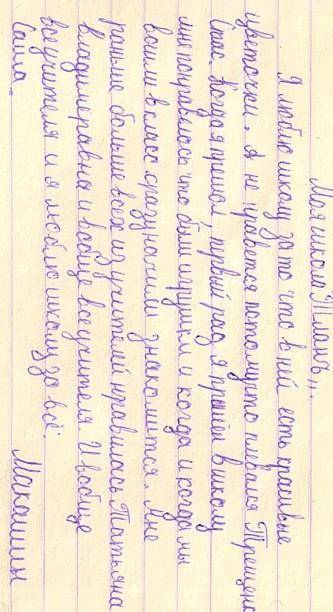 Моя школа "Плюсъ",,
Я люблю школу за то что в ней есть красивые
цветочки. А не нравется потомучто пивался Трещенк
Спас. Когда я пришол первый раз я пришёл в школу
мне понравилось что были игрушки и когда и когда мы
вошли в класс сразу начали знакомится. Мне
раньше больше всех из учителей нравилась Татьяна
Владимеравна и вобще все учителя И вобще
все учителя и я люблю школу за всё:
Саша Макашин